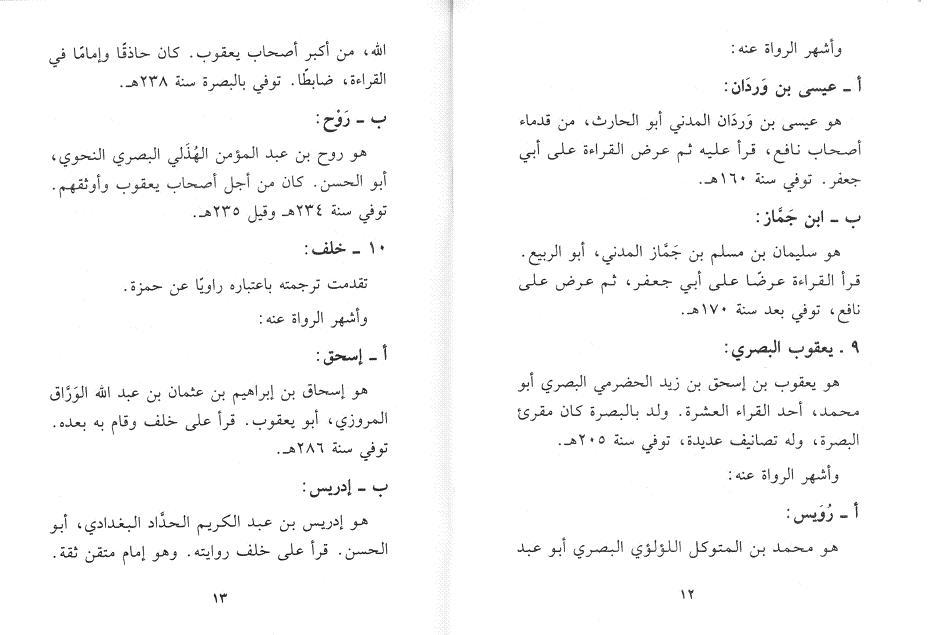 وأشهر الرواة عنه:
أ ـ عيسى بن وَردَان:
هو عيسى بن وَردَان المدني أبو الحارث، من قدماء
أصحاب نافع، قرأ عليه ثم عرض القراءة على أبي
جعفر. توفي سنة ١٦٠هـ.
ب ـ ابن جَمَّاز:
هو سليمان بن مسلم بن جَمَّاز المدني، أبو الربيع.
قرأ القراءة عرضًا على أبي جعفر، ثم عرض على
نافع، توفي بعد سنة ١٧٠هـ.
٩ . يعقوب البصري:
هو يعقوب بن إسحق بن زيد الحضرمي البصري أبو
محمد، أحد القراء العشرة. ولد بالبصرة كان مقرئ
البصرة، وله تصانيف عديدة، توفي سنة ٢٠٥هـ.
وأشهر الرواة عنه:
أ ـ رُوَيس:
هو محمد بن المتوكل اللؤلؤي البصري أبو عبد
١٢
الله، من أكبر أصحاب يعقوب. كان حاذقًا وإمامًا في
القراءة، ضابطًا. توفي بالبصرة سنة ٢٣٨هـ.
ب ـ رَوْح:
هو روح بن عبد المؤمن الهُذَلي البصري النحوي،
أبو الحسن. كان من أجل أصحاب يعقوب وأوثقهم.
توفي سنة ٢٣٤هـ وقيل ٢٣٥هـ.
١٠ ـ خلف:
تقدمت ترجمته باعتباره راويًا عن حمزة.
وأشهر الرواة عنه:
أ ـ إسحق:
هو إسحاق بن إبراهيم بن عثمان بن عبد الله الوَرَّاق
المروزي، أبو يعقوب. قرأ على خلف وقام به بعده.
توفي سنة ٢٨٦هـ.
ب ـ إدريس:
هو إدريس بن عبد الكريم الحدَّاد البغدادي، أبو
الحسن. قرأ على خلف روايته. وهو إمام متقن ثقة.
١٣